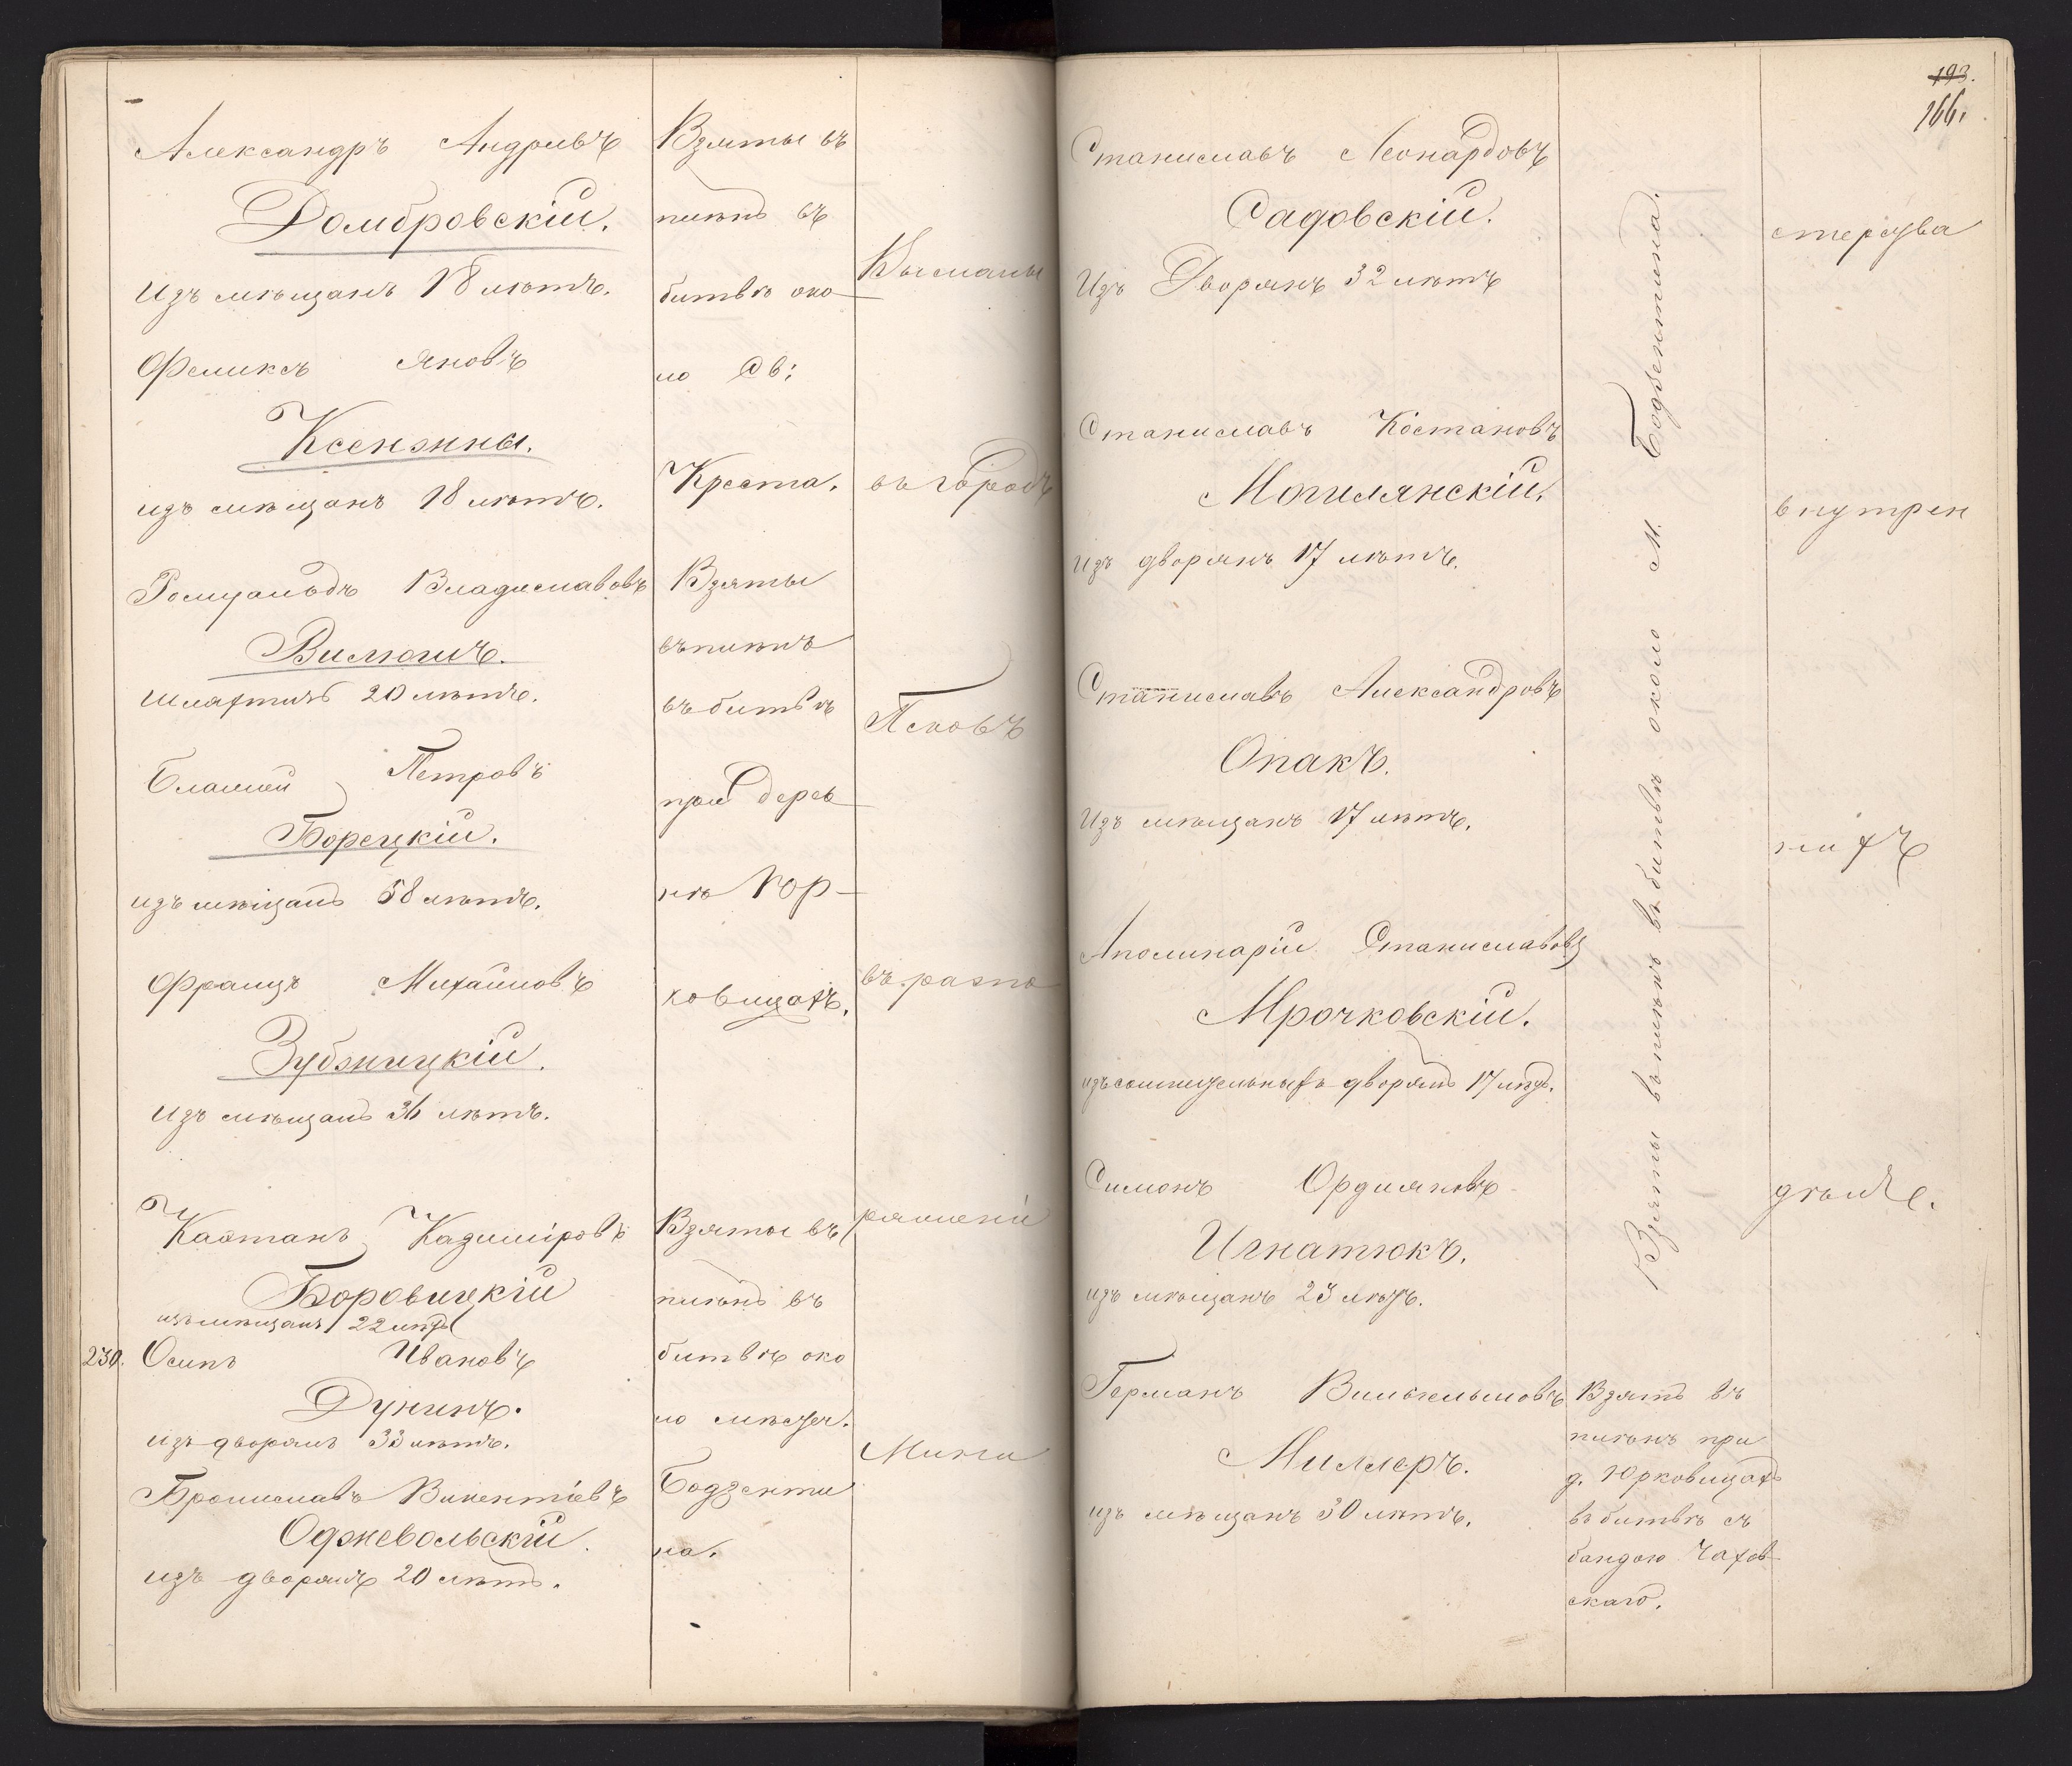 Александръ Андреевъ
Домбровскій.
Изъ мѣщанъ 18 лѣтъ.
Феликсъ Яновъ
Ксенжны.
изъ мѣщанъ 18 лѣтъ.
Ромуальдъ Владиславовъ
Вилюгъ.
Шляхтичъ 20 лѣтъ.
Петровъ
Борецкій.
изъ мѣщанъ 58 лѣтъ.
Францъ Михайловъ
Зубжицкій.
изъ мѣщанъ 36 лѣтъ.
Каэтанъ Казиміровъ
Боровицкій
изъ мѣщанъ 22 лѣтъ
230. Осипъ Ивановъ
Дунинъ.
изъ дворянъ 33 лѣтъ.
Брониславъ Викентіевъ
Оджевольскій.
изъ дворянъ 20 лѣтъ.
Взяты въ
плѣнъ въ
битвѣ око-
ло Св:
Креста.
Взяты
въ плѣнъ
въ битвѣ
при дерев
нѣ Юр-
ковицахъ.
Взяты въ
плѣнъ въ
битвѣ око
ло мѣстеч.
Бодзенти
на.
Высланы
въ городъ
Псковъ
въ распо
ряженіи
Мини
193.
166.
Станиславъ Леонардовъ
Садовскій.
Изъ Дворянъ 32 лѣтъ
Станиславъ Костановъ
Могилянскій.
изъ дворянъ 17 лѣтъ.
Станиславъ Александровъ
Опакъ.
Изъ мѣщанъ 17 лѣтъ.
Аполинарій Станиславовъ
Мрочковскій.
изъ сомнительныхъ дворянъ 17 лѣтъ.
Симонъ
Игнатюкъ.
изъ мѣщанъ 23 лѣтъ.
Германъ Вильгельмовъ
Миллеръ.
изъ мѣщанъ 30 лѣтъ.
Взяты въ плѣнъ въ битвѣ около М. Бодзентина.
Взятъ въ
плѣнъ при
д. Юрковицахъ
въ битвѣ съ
бандою Чахов-
скаго.
стерства
внутрен
нихъ
дѣлъ.